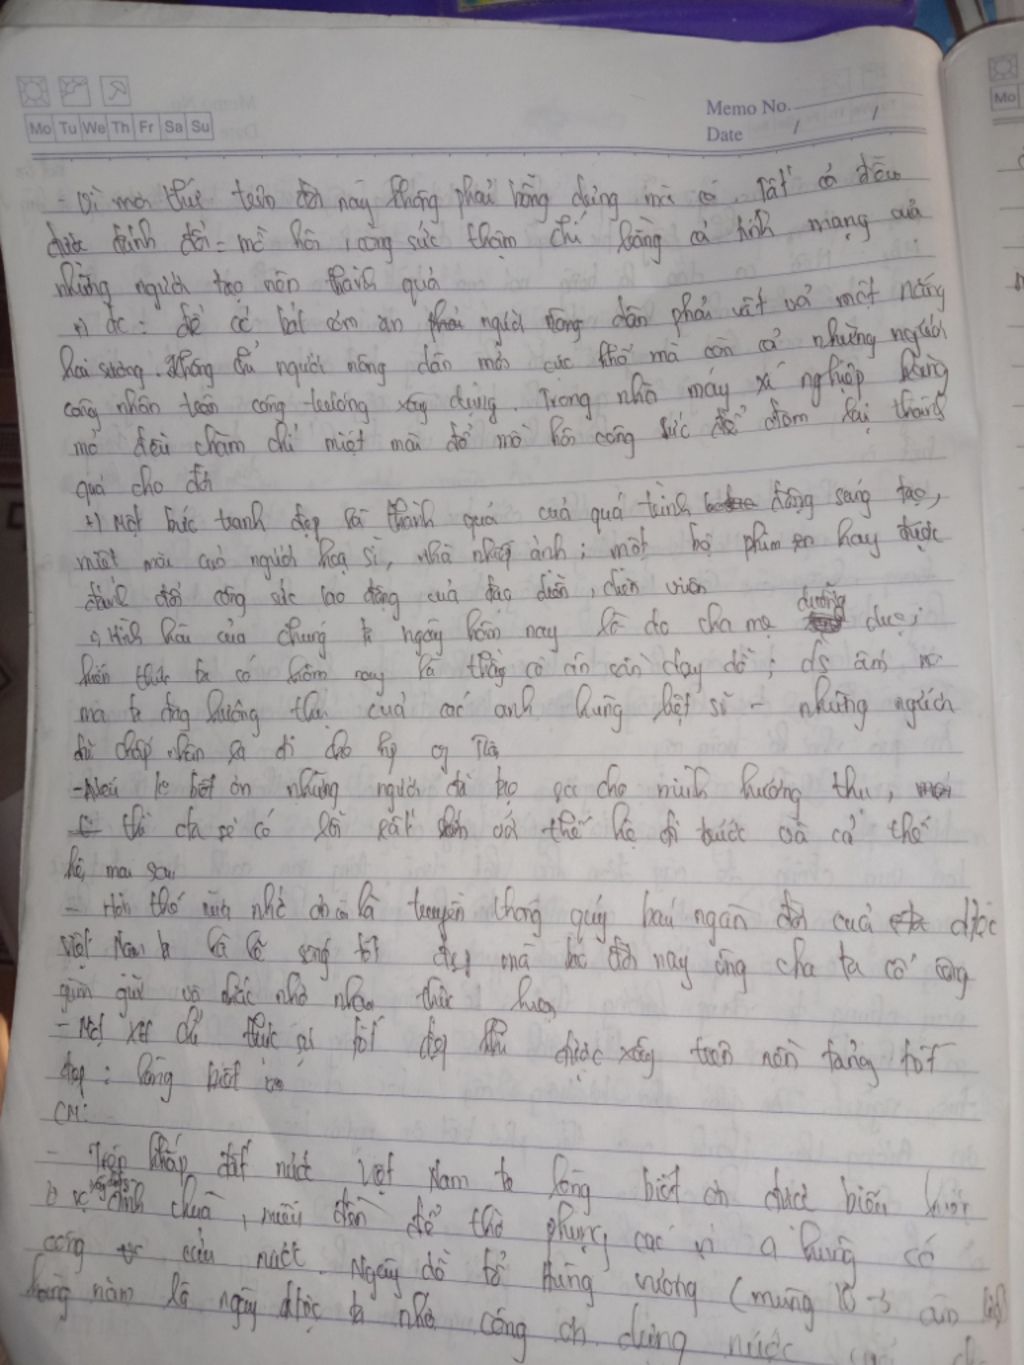 Memo No.
Mo Tu We Th Fr Sa Su
Date / /
Mo
- Vì mọi thứ trên đời này không phải bỗng dưng mà có. Tất cả đều
được đánh đổi = mồ hôi, công sức thậm chí bằng cả tính mạng của
những người tạo nên thành quả
+) đc: để có bát cơm ăn người nông dân phải vất vả một nắng
hai sương. không chỉ người nông dân mới cực khổ mà còn cả những người
công nhân trên công trường xây dựng. Trong nhà máy xí nghiệp hầng
mỏ đều chăm chỉ miệt mài đổ mồ hôi công sức để đem lại thành
quả cho đời
+) Một bức tranh đẹp là thành quả của quá trình động sáng tạo,
miệt mài của người hoạ sĩ, nhà nhiếp ảnh; một bộ phim hay được
đánh đổi công sức lao động của đạo diễn, diễn viên
+) Hình hài của chúng ta ngày hôm nay là do cha mẹ dưỡng dục;
kiến thức ta có hôm nay là thầy cô ân cần dạy dỗ; ấm
mà ta đang hưởng thụ của các anh hùng liệt sĩ - những người
đã chấp nhận ra đi
- Nếu ko biết ơn những người đã tạo ra cho mình hưởng thụ,
thì ta sẽ có lỗi rất với thế hệ đi trước và cả thế
hệ mai sau
- Hơn thế nữa nhớ ơn là truyền thống quý báu ngàn đời của dtộc
Việt Nam ta là lẽ sống tốt đẹp mà bao đời nay ông cha ta cố công
gìn giữ và nhắc nhở
- Một xh chỉ thực sự tốt đẹp khi được xây trên nền tảng tốt
đẹp: lòng biết ơn
CM:
- Trên khắp đất nước Việt Nam ta lòng biết ơn được biểu hiện
ở đình chùa, miếu đền để thờ phụng các vị a hùng có
công cứu nước. Ngày dỗ tổ Hùng vương (mùng 10-3 âm lịch
hàng năm là ngày dtộc ta nhớ công ơn dựng nước